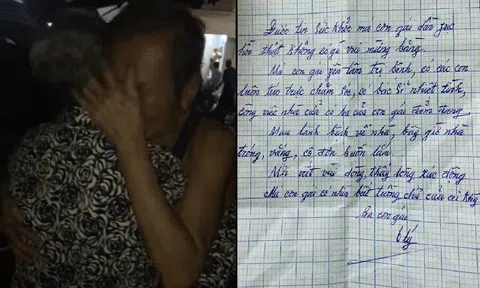 Được tin sức khỏe má con gái dần phục
hồi thật không có gì vui mừng bằng.
Má con gái yên tâm trị bệnh, có các con
luôn túc trực chăm lo, có bác sĩ nhiệt tình,
công việc nhà cửa có ba của con gái đảm đang
Mau lành bệnh về nha, bây giờ nhà
trống, vắng, cô đơn buồn lắm!
Mới viết vài dòng, thấy lòng xúc động
Má con gái có nhìn chữ của
Ba con gái